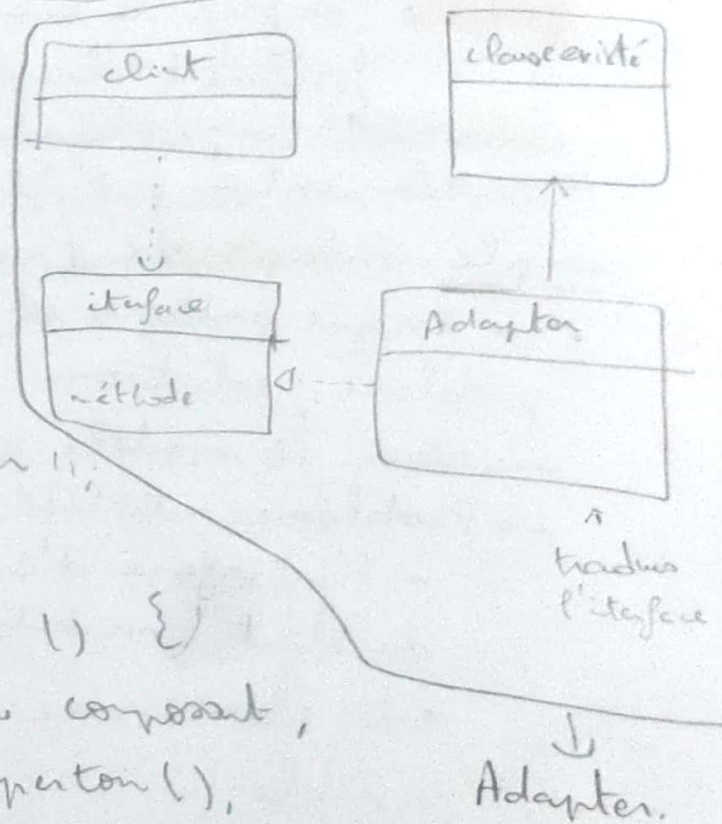 client
classe existé
interface
méthode
Adapter
traduis
l'interface
() {}
composant,
operton(),
Adapter.